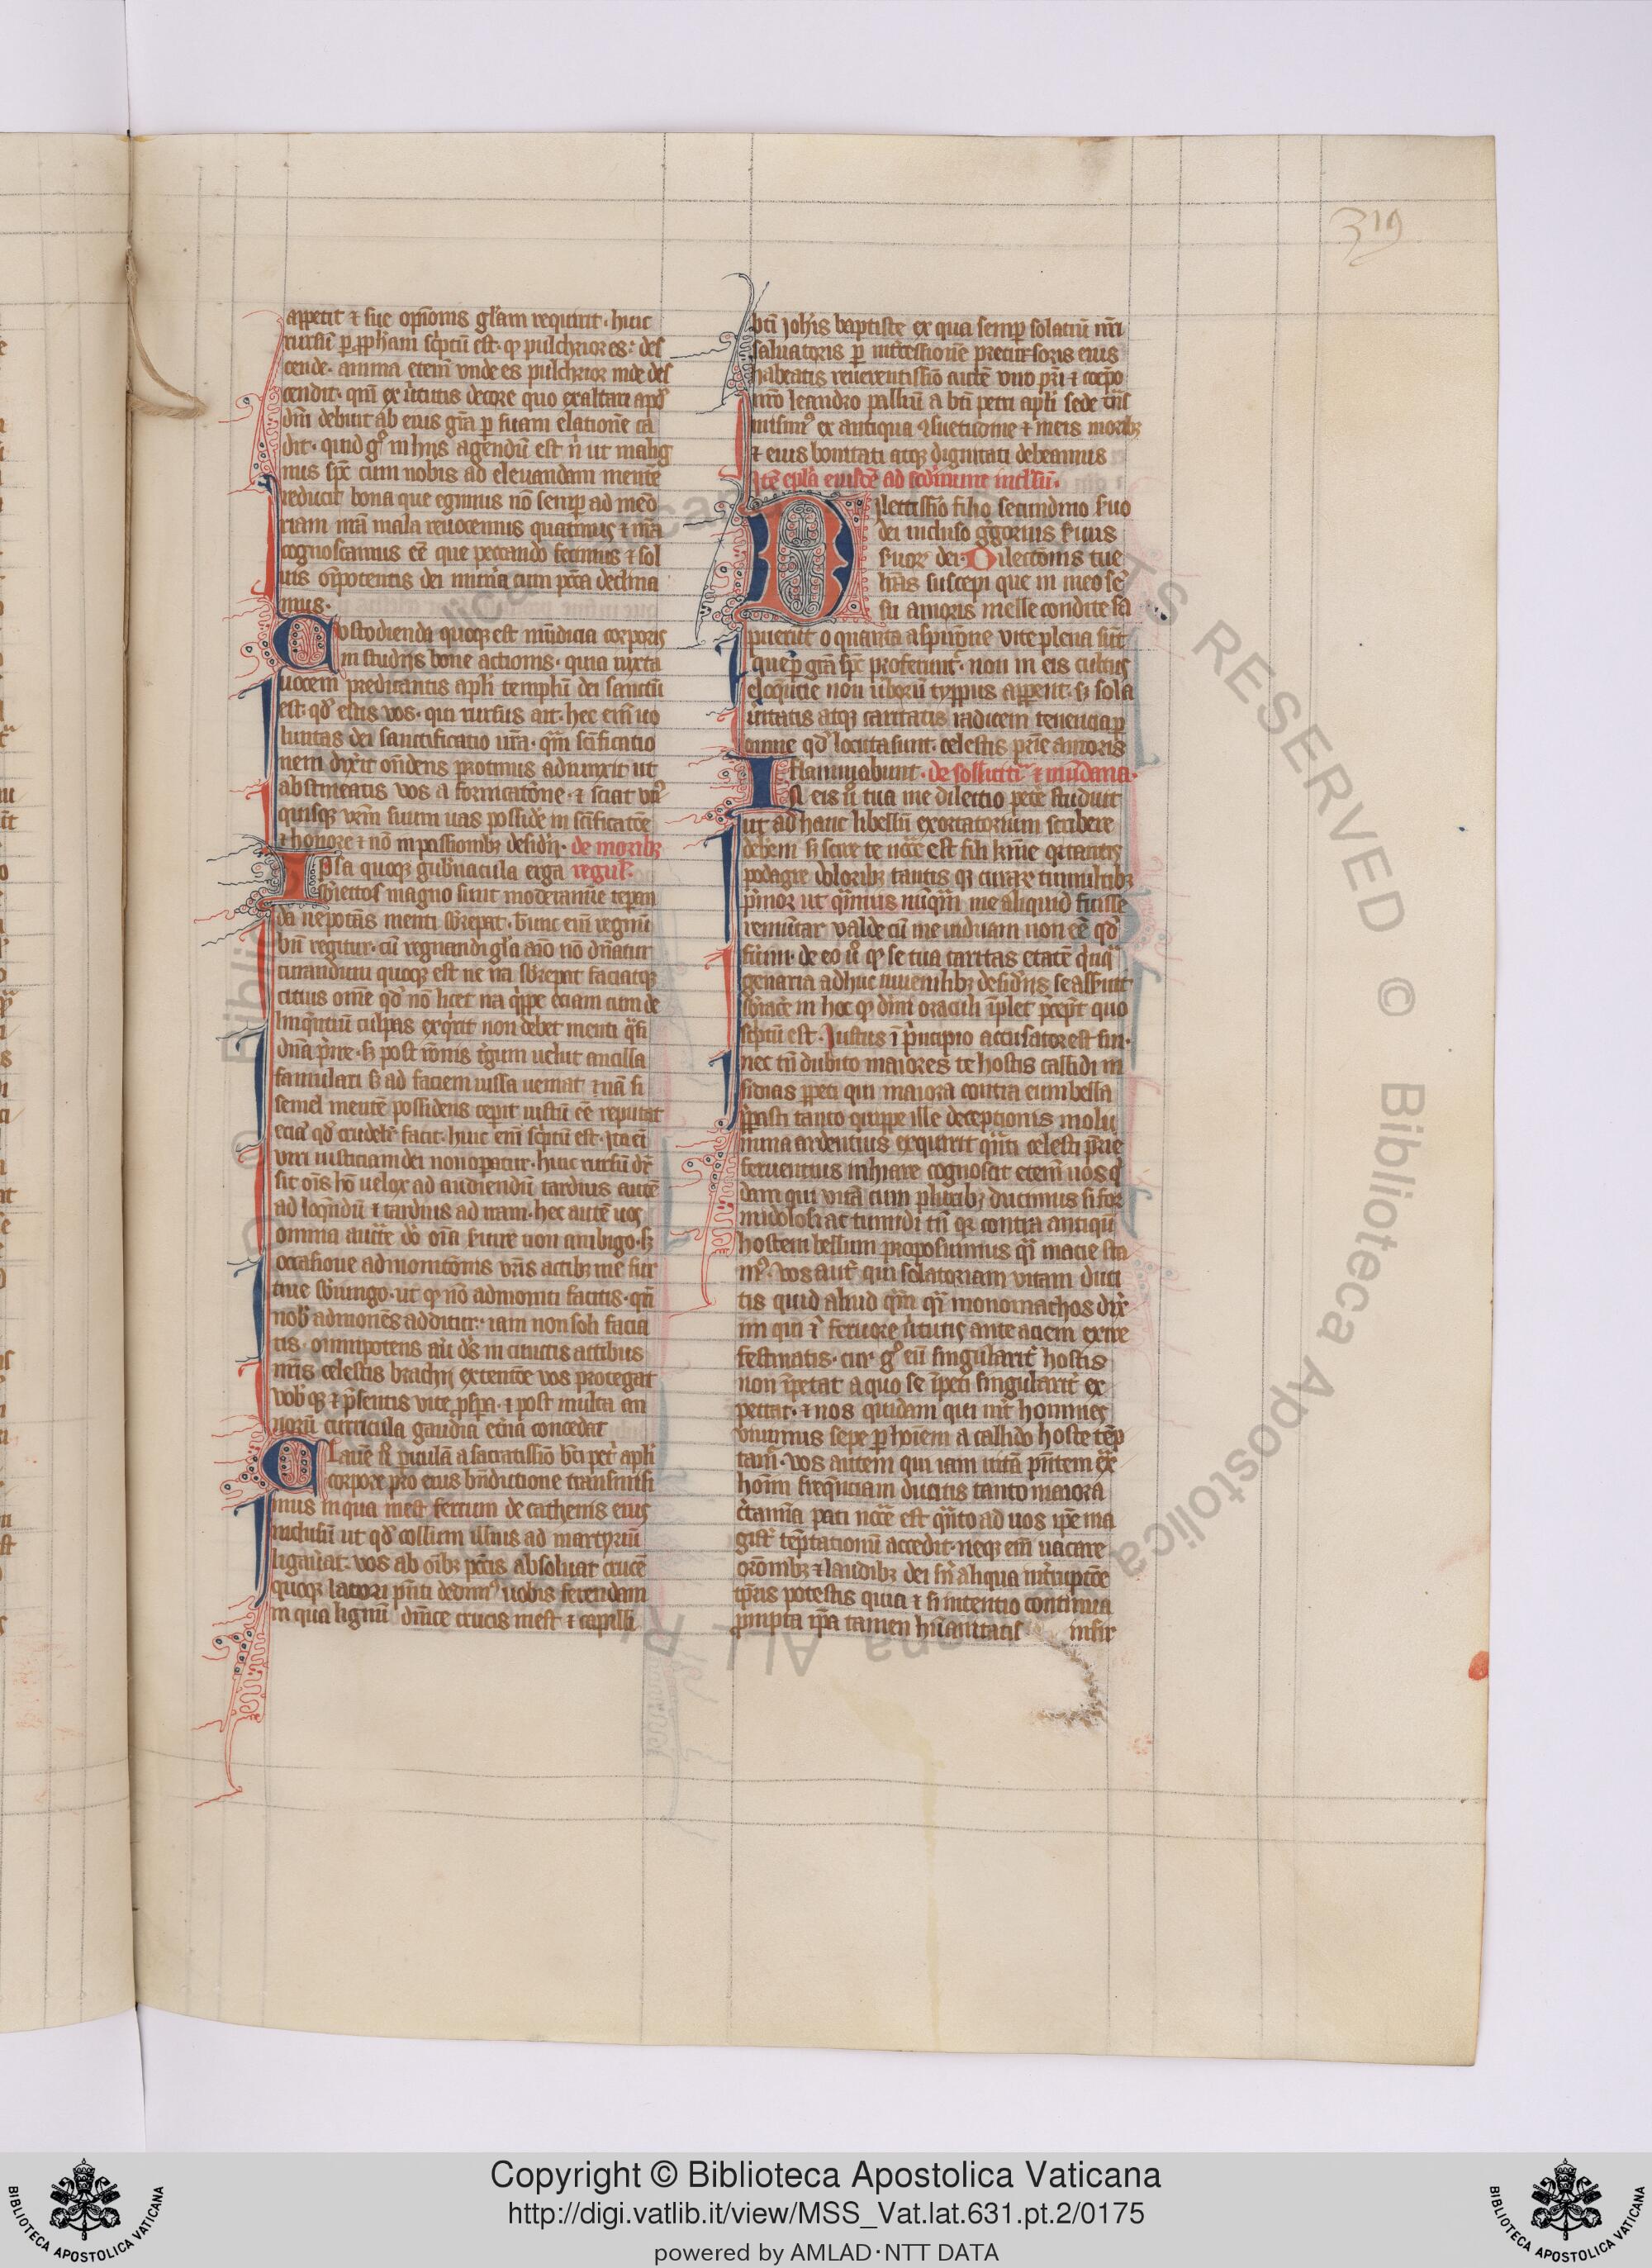 319
appetit ⁊ sue opīonis gl̄am requirit · huic
rursū ꝑ ꝓph̄am sc̄ptū est · ꝙ pulchrior es · des
cende · anima etem̄ vnde es pulchrior inde des
cendit · qm̄ ex v̓tutis decore quo exaltari apd̓
dm̄ debuit ab eius gr̄a ꝑ suam elationē ca
dit · quid g̊ in hijs agendū est n̓ ut malig
nus sp̄c cum nobis ad eleuandam mentē
reducit bona que egimus nō semꝑ ad memo
riam mala reuocemus quatinus ⁊
cognoscamus eē̄ que peccando fecimus ⁊ sol
ius om̄ipotentis dei mun̓a cum pctā declina
mus ·
Custodienda quoqꝫ est mūdicia corporis
in studijs bone actionis · quia iuxta
uocem predicantis apl̓i templū dei sanctū
est · qd̓ estis vos · qui rursus ait · hec em̄ uo
luntas dei sanctificatio ur̄a · quā sc̄ificatio
nem dixit on̄dens protinus adiunxit ut
abstineatis vos a fornicatōne · ⁊ sciat vn̓
quisqꝫ vr̄m suum uas possidē in sc̄ificatōe
⁊ honore ⁊ nō in passionibꝫ desid̓ij · de moribꝫ
Ipsa quoqꝫ gub̓nacula erga regul̓ ·
sb̓iectos magno sunt moderamīe tēpan
da ne potētas menti sb̓repat · tunc em̄ regnū
bn̄ regitur · cū regnandi gl̓a aīo nō dn̄atur
curandum quoqꝫ est ne ira sb̓repat faciatqꝫ
citius om̄e qd̓ nō licet ira q̓ppe eciam cum de
linq̓ntiū culpas exq̓rit non debet menti q̓si
dn̄a p̓ire · sꝫ post rōnis t̓gum uelut ancilla
famulari ad faciem iussa ueniat · nā si
semel mentē possidens cepit iustū eē reputat
eciā qd̓ crudelit̓ facit · huic em̄ sc̄ptū est · Ira em̄
viri iusticiam dei non opatur · huic rursū dr̄
sit om̄is hō uelox ad audiendū tardius autē
ad loq̓ndū ⁊ tardius ad iram · hec autē uos
omnia auctre dō om̄ia suare non ambigo · sꝫ
occasione admonitōnis vr̄is actibꝫ me fur
tiue sb̓iungo · ut ꝙ nō admoniti facitis · qn̄
nob̓ admonēs additur · iam non soli facia
tis · omnipotens aū d̄s in cunctis actibus
vr̄is celestis brachij extensiōe vos protegat
vob̓qꝫ ⁊ p̄sentis vite ꝓspa · ⁊ post multa an
norū curricula gaudia et̓na concedat
Clauē sꝫ paruulā a sacratissīo b̄ti pet̓ apl̓i
corpore pro eius bn̄dictione transmisi
mus in qua inest ferrum de cathenis eius
inclusū ut qd̓ collum illius ad martyriū
ligau̓at · vos ab om̄ibꝫ pctīs absoluat crucē
quoqꝫ latori p̄nti dedim̓ uobis ferendam
in qua lignū dn̄ice crucis inest ⁊ capilli
b̄ti Joh̄is baptiste ex qua semꝑ solatiū nr̄i
saluatoris ꝑ int̓cessionē precursoris eius
habeatis reuerentissīo autē viro pr̄i ⁊ coepō
nr̄o leandro palliū a b̄ti petri apl̓i sede
misim̓ ex antiqua ꝯsuetudine ⁊ meis moribꝫ
⁊ eius bonitati atqꝫ dignitati debeamus
Itē epl̄a eiusdē ad secūdinum inclusū ·
Dilectissīo filio secundino s̓uo
dei incluso g̓gorius s̓uus
s̓uoꝝ dei · Dilectōnis tue
lr̄as suscepi que in meo se
su amoris melle condite sa
puerūt o quanta aspirōne vite plena sūt
que ꝑ gr̄a sp̄c proferunt̓ · non in eis cultus
eloq̓ntie non ūborū typpus apparet · sꝫ sola
ūitatis atqꝫ caritatis radicem tenencia ꝑ
omne qd̓ locuta sunt · celestis pr̄ie amoris
flammabunt · de sollicitū ⁊ mūdana ·
In eis ū tua me dilectio petē studuit
ut ad hanc libellū exortatorium scribere
debem sꝫ scire te nccē est fili kmē quantis
podagre doloribꝫ tantis qꝫ curaꝝ tumultibꝫ
p̓moꝝ ut q̓mius nūq̓m me aliquid fuisse
reminiscar valde cū me induam non eē qd̓
fuim · de eo ū ꝙ se tua caritas etatē q̓nq̓
genaria adhuc iuuenilibꝫ desid̓ijs se asseruit
ꝯgrauē in hoc ꝙ dīni oraculi īplet p̄cept quo
sc̄ptū est · Justus ī p̓ncipio accusator est sui ·
nec tn̄ dubito maiores te hostis callidi in
sidias ꝑpeti qui maiora contra eum bella
ꝑpasti tanto quippe ille deceptionis molu
mina ardentius exquirit qn̄to celesti pr̄ie
feruentius inhiare cognoscit etem̄ nos q̓
dam qui vitā cum pluribꝫ ducimus si for
midolosi ac tumidi tn̄ qꝛ contra antiquū
hostem bellum proposuimus q̓i in acie sta
m̓ · vos aut̄ qui solatoriam vitam duci
tis quid aliud q̓m q̓i monomachos dix̓
im qui ī feruore ūtutis ante aciem exire
festinatis · cur g̊ eū singularit̓ hostis
non īpetat a quo se īpeti singularit̓ ex
pectat · ⁊ nos quidam qui int̓ homines
viuimus sepe ꝑ hoīem a callido hoste tēp
tam̄ · vos autem qui iam uitā p̄ntem ext̓
hoīm freq̓nciam ducitis tanto maiora
c̓tamīa pati nccē est q̓nto ad uos ip̄e ma
gist̓ tēptationū accedit · neqꝫ em̄ uacare
orōnibꝫ ⁊ laudibꝫ dei sn̄ aliqua int̓ruptōe
tp̄ris potestis quia ⁊ si intentio continua
ꝓmpta ip̄a tamen hūanitatis infir
Copyright © Biblioteca Apostolica Vaticana
http://digi.vatlib.it/view/MSS_Vat.lat.631.pt.2/0175
powered by AMLAD·NTT DATA
BIBLIOTECA APOSTOLICA VATICANA
BIBLIOTECA APOSTOLICA VATICANA